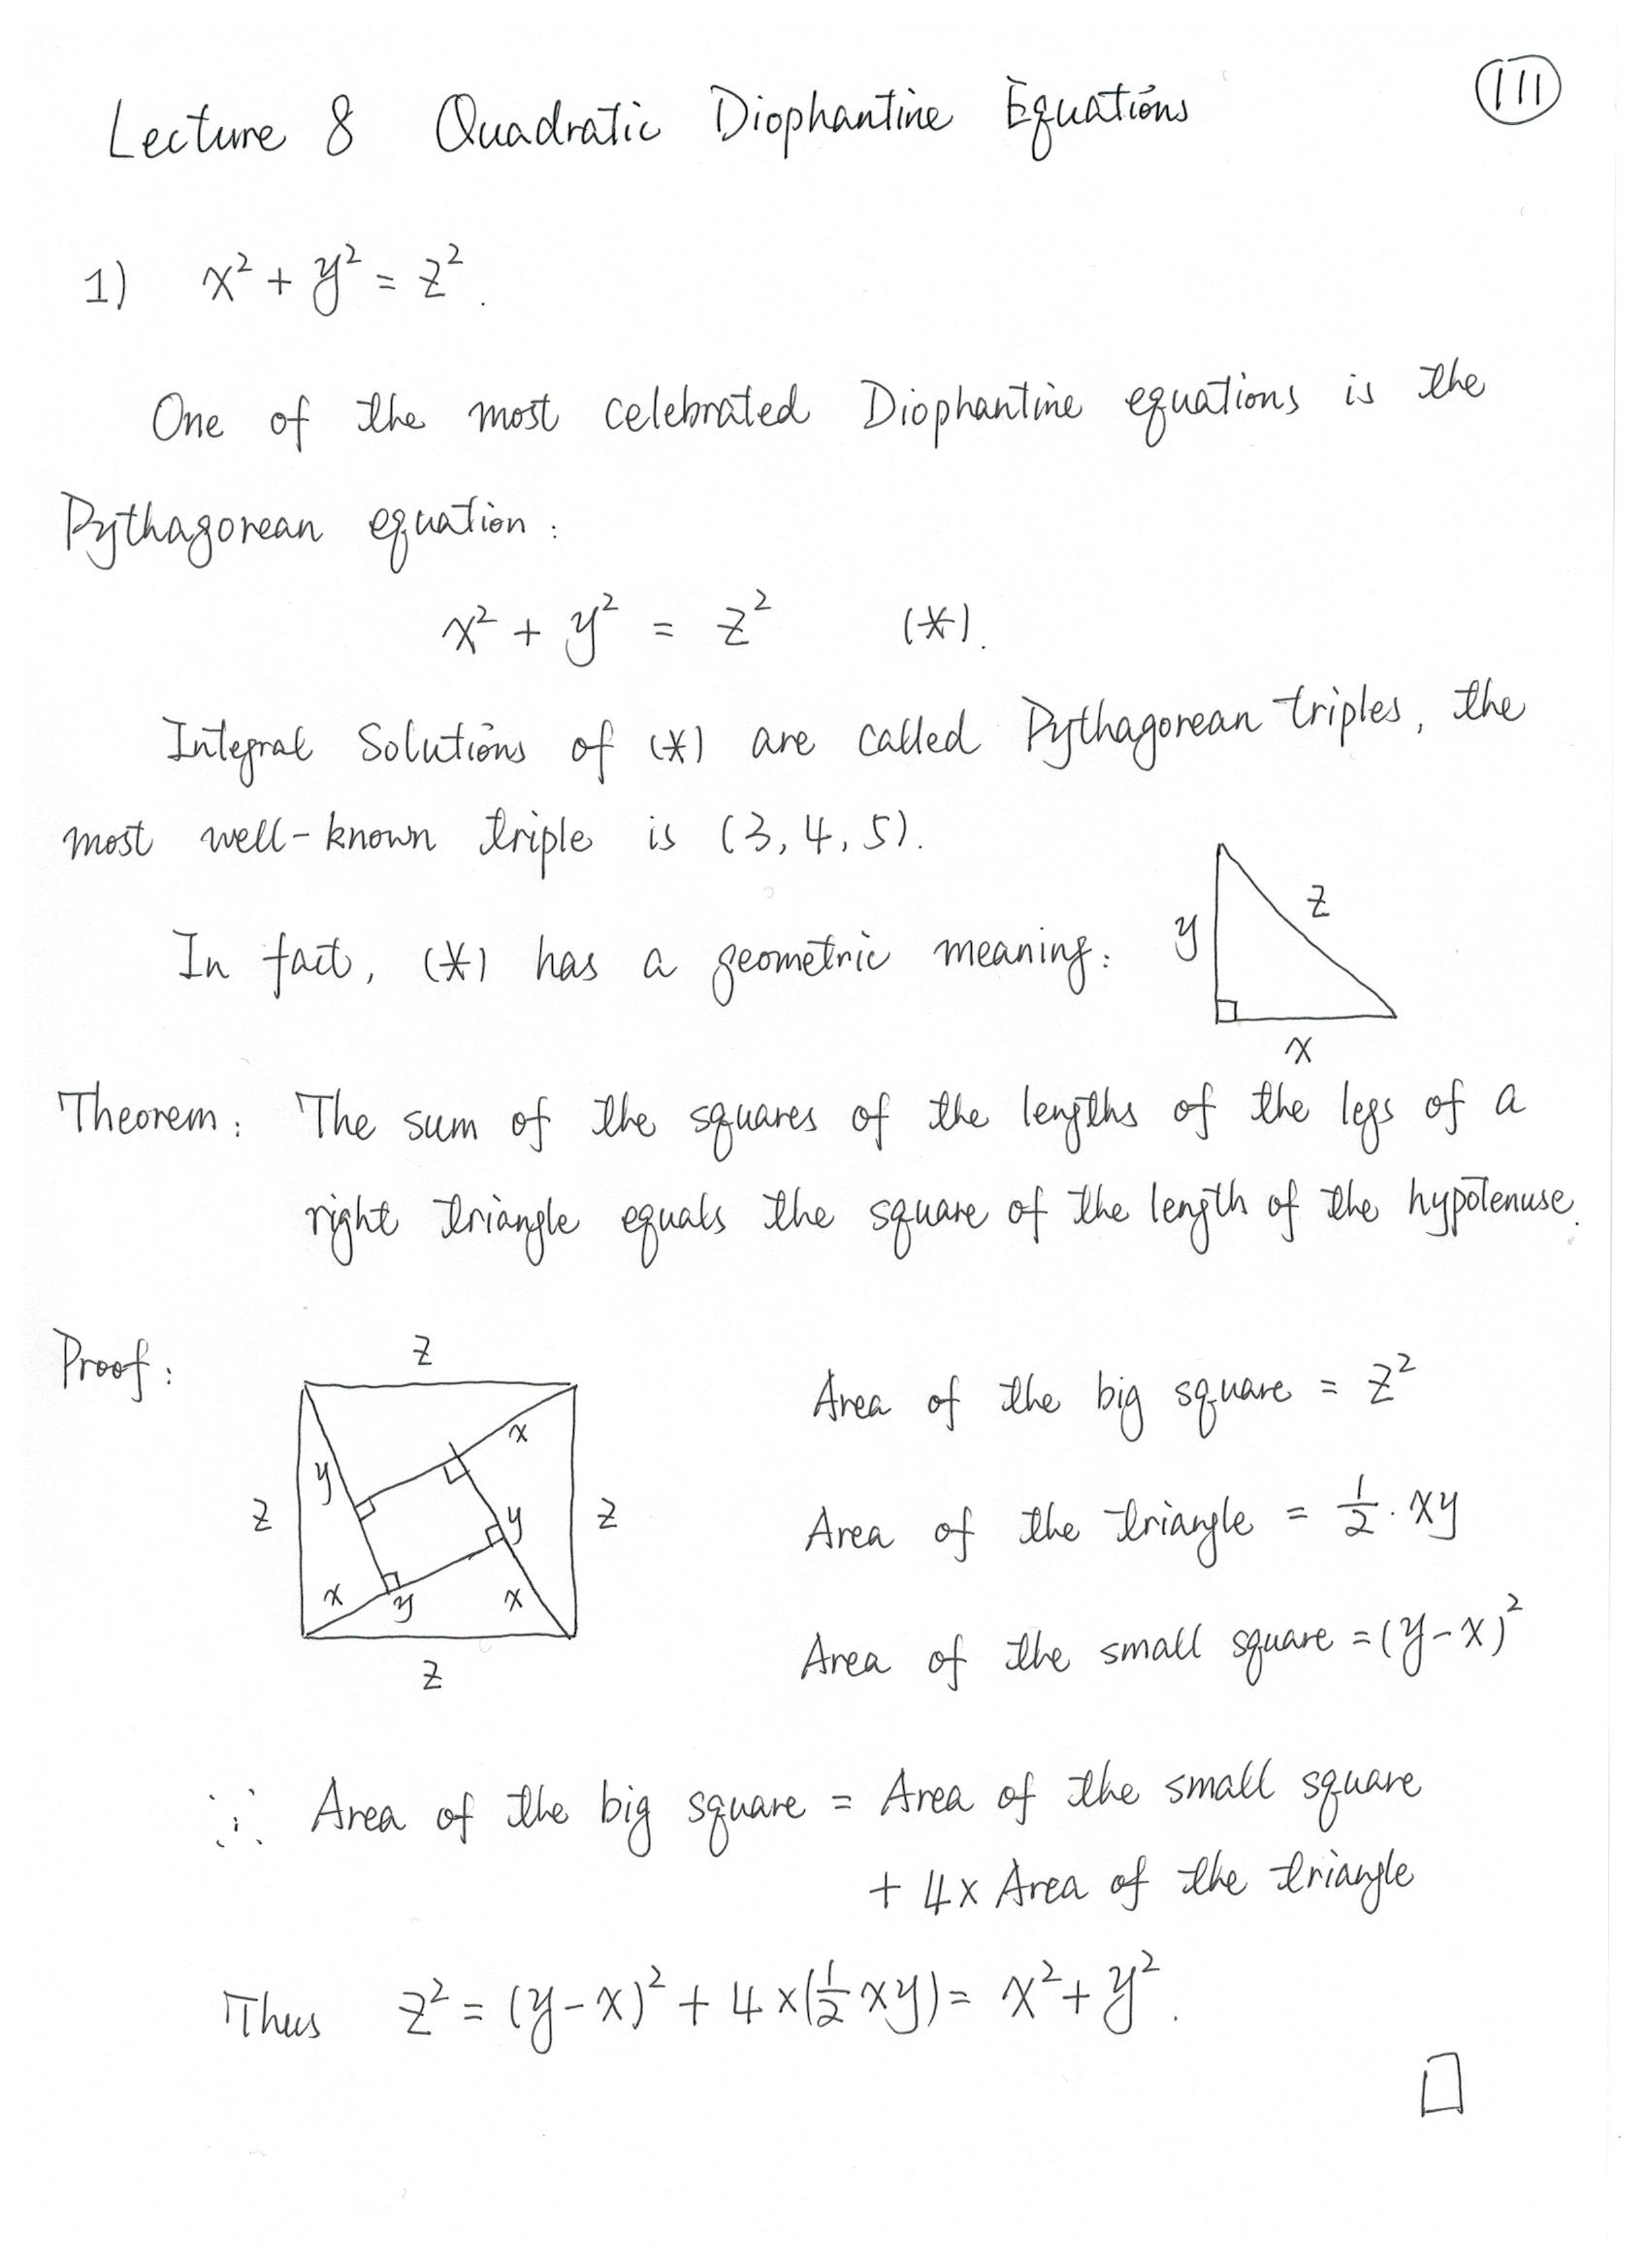 Lecture 8 Quadratic Diophantine Equations
111
1) x² + y² = z².
One of the most celebrated Diophantine equations is the
Pythagorean equation:
x² + y² = z² (*).
Integral Solutions of (*) are called Pythagorean triples, the
most well-known triple is (3, 4, 5).
In fact, (*) has a geometric meaning:
y
z
x
Theorem: The sum of the squares of the lengths of the legs of a
right triangle equals the square of the length of the hypotenuse.
Proof:
z
x
y
z
y
z
x
y
x
z
Area of the big square = z²
Area of the triangle = 1/2 · xy
Area of the small square = (y-x)²
∵ Area of the big square = Area of the small square
+ 4× Area of the triangle
Thus z² = (y-x)² + 4×(1/2 xy) = x² + y².
□